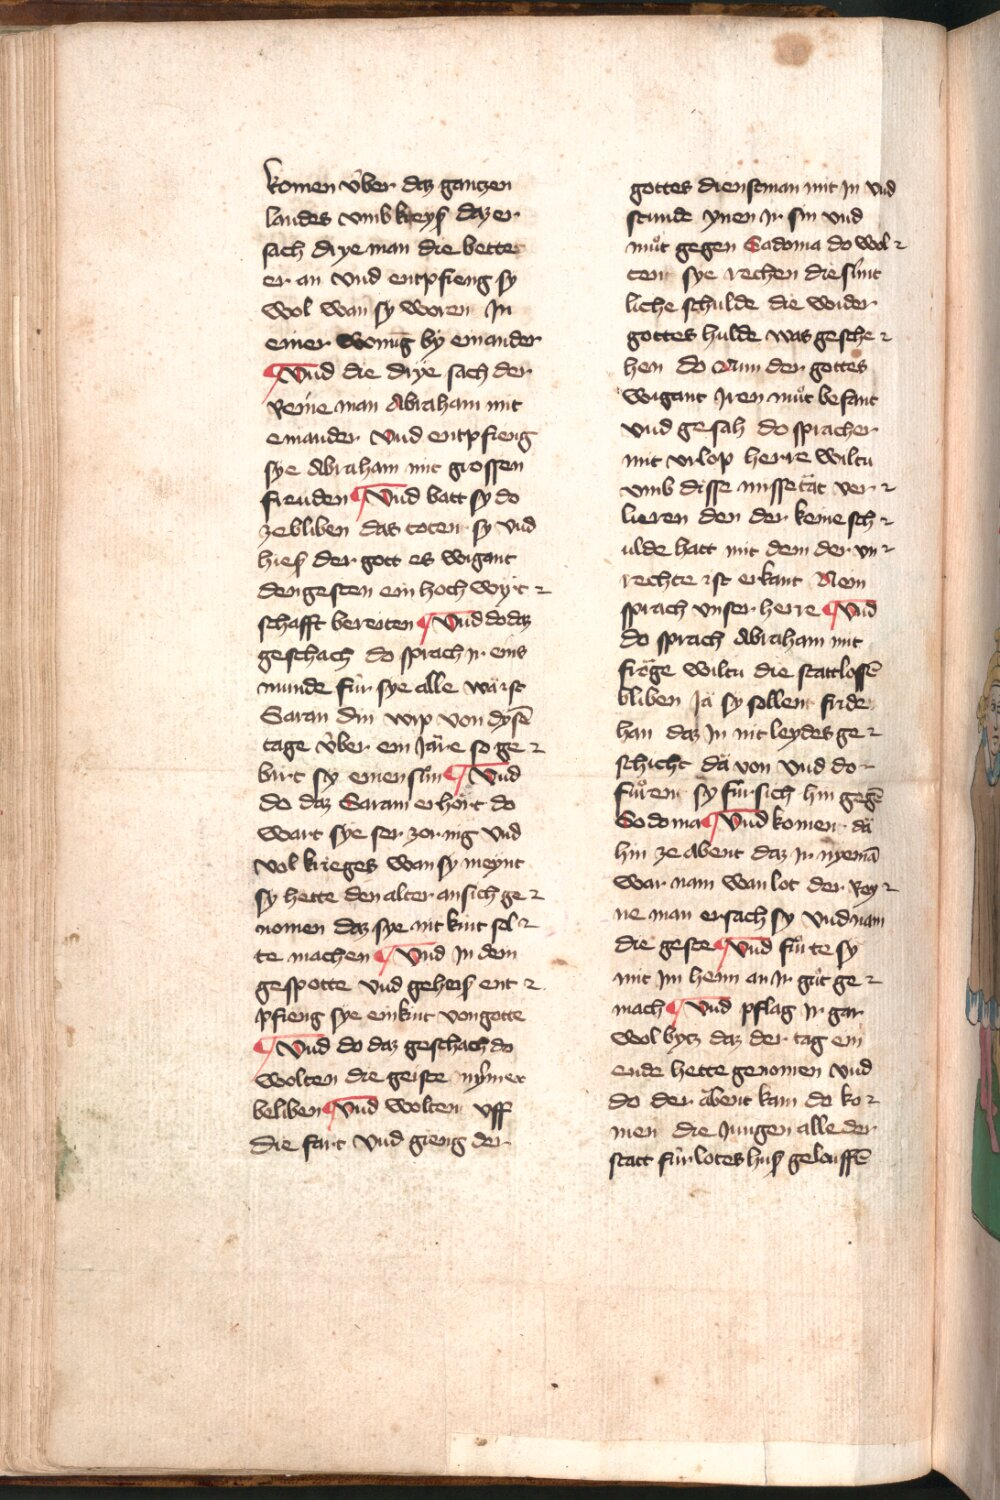 komen v̈ber daz ganczen
landes vmb kreyß daz er
sach drye man die bette
er an vnd entpfieng sy
wol wan sy woren In
einer wonūg by einander
¶ Vnd die drye sach der
Reine man Abraham mit
einander Vnd entpfieng
sye Abraham mit grossen
freuden ¶ Vnd batt sy do
ze bliben das toten sy vnd
hieß der gott es wigant
den gesten ein hoch wyrt
schafft bereiten ¶ Vnd do daz
geschach do sprach ir eins
munde für sye alle wärst
Saran din wip von dysē
tage v̈ber ein Järe so ge
birt sy einen sůn ¶ Vnd
do daz Saram erhört do
wart sye ser zornig vnd
vol krieges wan sy meynt
sy hette den alter an sich ge
nomen daz sye nit kint sol
te machen ¶ Vnd In dem
gespotte vnd geheiß ent
pfieng sye ein kint von gotte
¶ Vnd do daz geschach do
wolten die geiste nyͤmer
beliben ¶ Vnd wolten vff
die fart Vnd gieng der
gottes dienstman mit In vnd
stunde ynen Ir sin vnd
můt gegen Sadoma do wol
ten sye rechen die sünt
liche schulde die wider
gottes hulde was gesche
hen do Nun der gottes
wigant Iren můt befant
vnd gesah do sprach er
mit vrlop herre wiltu
vmb disse missetät ver
lieren den der keine sch
ulde hatt mit dem der vn
rechte ist erkant Nein
sprach vnser herre ¶ Vnd
do sprach Abraham mit
fräge wiltu die stattlossē
bliben Jä sy sollent fride
han daz In nit leydes ge
schicht dä von vnd do
fůrent sy für sich hin gegē
Sodoma ¶ Vnd koment dä
hin ze Abent daz Ir nyemā
war nam wan lot der Rey
ne man ersach sy vnd nam
die geste ¶ Vnd fůrte sy
mit Im heim an Ir gůt ge
mach ¶ Vnd pflag Ir gar
wol bytz daz der tag ein
ende hette genomen vnd
do der äbent kam do ko
men die Jungen alle der
statt für lotes huß gelouffē